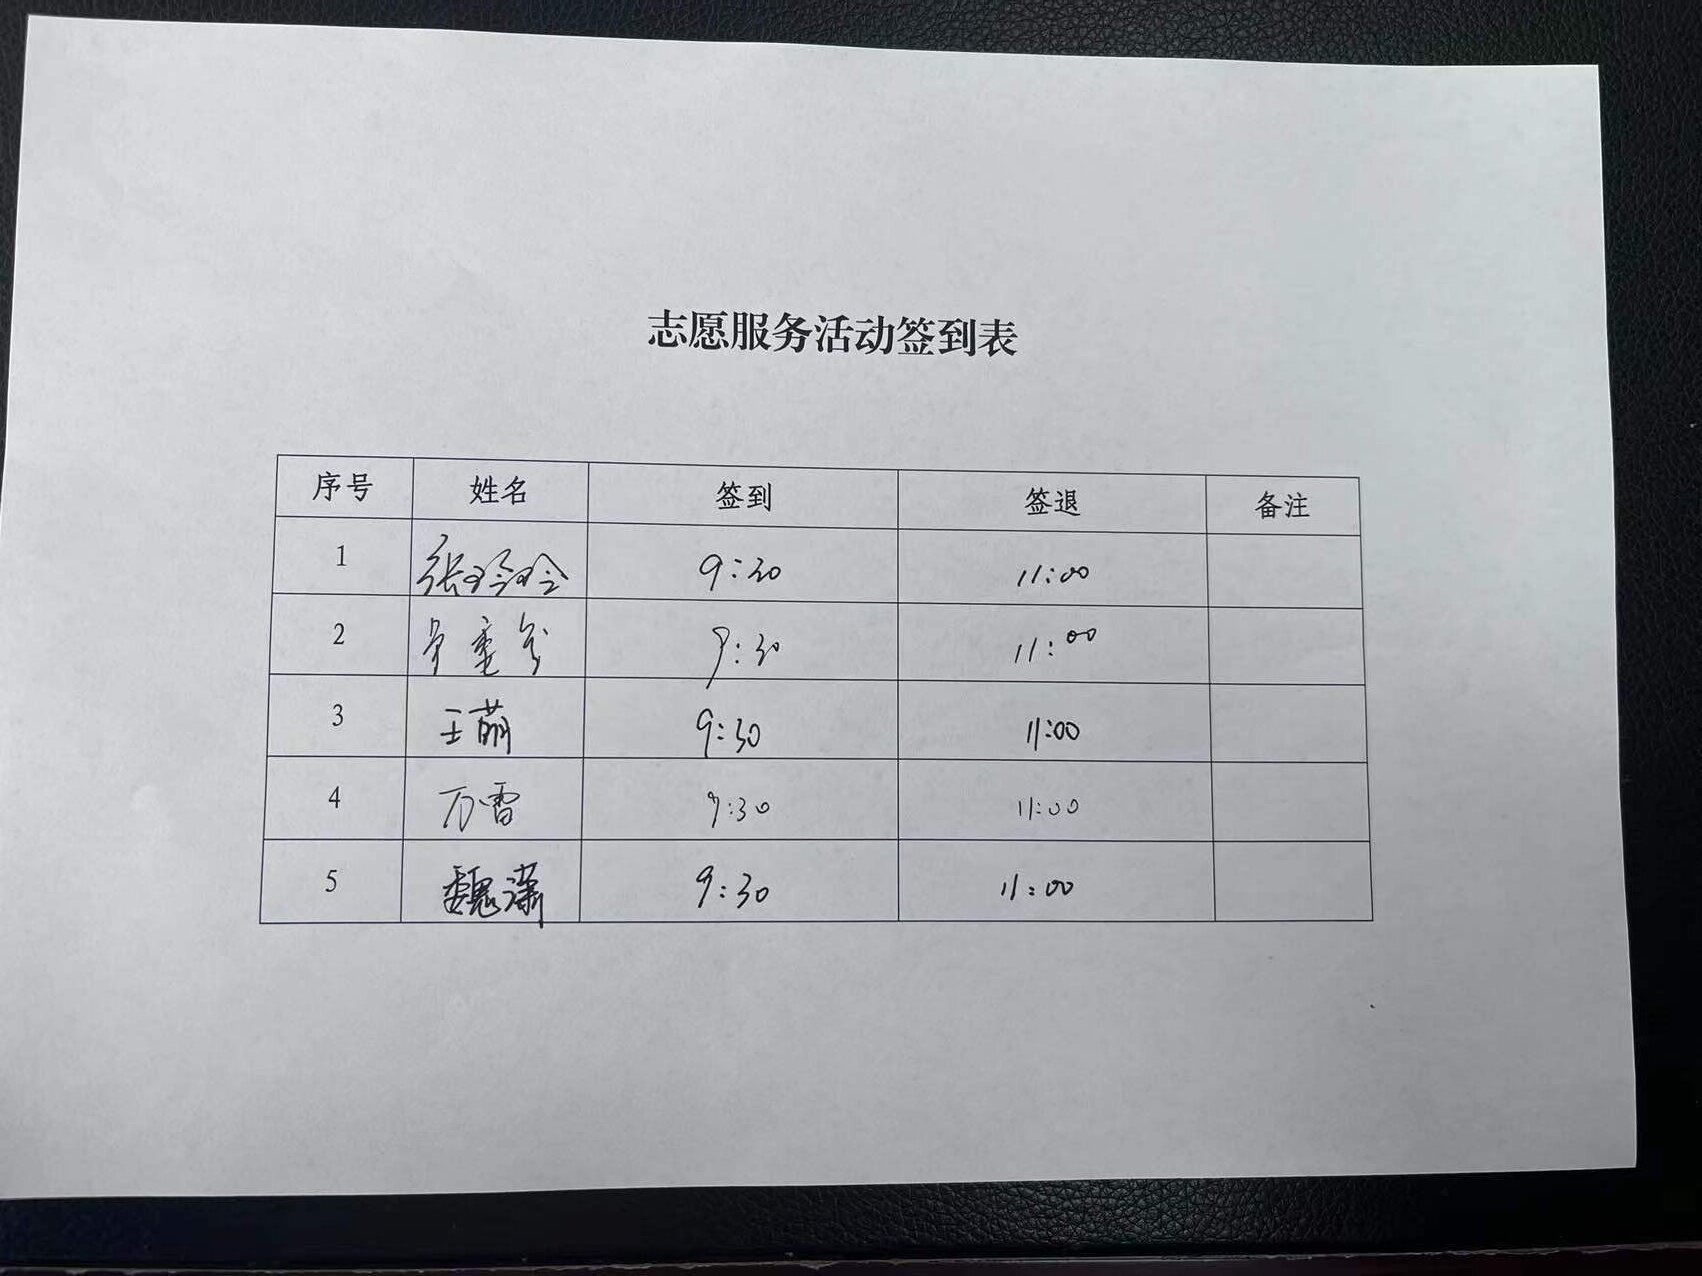 志愿服务活动签到表
序号 姓名 签到 签退 备注
1 张玲玲 9:30 11:00
2 9:30 11:00
3 王萌 9:30 11:00
4 万雷 9:30 11:00
5 魏潇 9:30 11:00